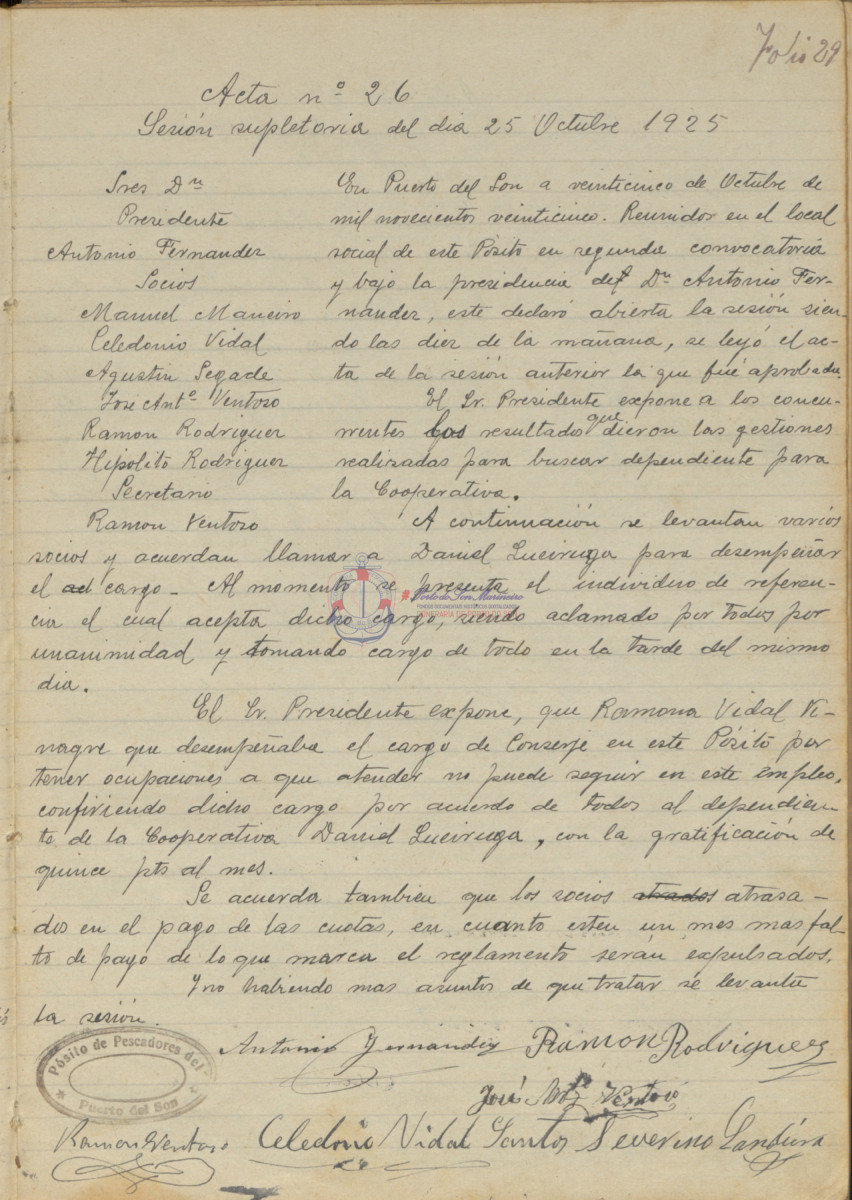 Folio 29
Acta nº 26
Sesión supletoria del dia 25 Octubre 1925
Sres Dn
Presidente
Antonio Fernandez
Socios
Manuel Maneiro
Celedonio Vidal
Agustin Segade
José Antº Ventoso
Ramon Rodriguez
Hipolito Rodriguez
Secretario
Ramon Ventoso
En Puerto del Son a veinticinco de Octubre de
mil novecientos veinticinco. Reunidos en el local
social de este Pósito en segunda convocatoria
y bajo la presidencia de Dn Antonio Fer-
nandez, este declaró abierta la sesión sien-
do las diez de la mañana, se leyó el ac-
ta de la sesión anterior la que fué aprobada.
El Sr. Presidente expone a los concu-
rrentes los resultados que dieron las gestiones
realizadas para buscar dependiente para
la Cooperativa.
A continuación se levantan varios
socios y acuerdan llamar a Daniel Lueiruga para desempeñar
el cargo - Al momento se presenta el individuo de referen-
cia el cual acepta dicho cargo, siendo aclamado por todos por
unanimidad y tomando cargo de todo en la tarde del mismo
dia.
El Sr. Presidente expone, que Ramona Vidal Vi-
nagre que desempeñaba el cargo de Conserje en este Pósito por
tener ocupaciones a que atender no puede seguir en este empleo,
confiriendo dicho cargo por acuerdo de todos al dependien-
te de la Cooperativa Daniel Lueiruga, con la gratificación de
quince pts al mes.
Se acuerda tambien que los socios atrados atrasa-
dos en el pago de las cuotas, en cuanto esten un mes mas fal-
to de pago de lo que marca el reglamento serán expulsados.
Y no habiendo mas asuntos de que tratar se levanta
la sesión.
Antonio Fernández Ramon Rodriguez
José Antº Ventoso
Pósito de Pescadores del
Puerto del Son
Ramon Ventoso Celedonio Vidal Santos Severino Landeira
Porto do Son Marineiro